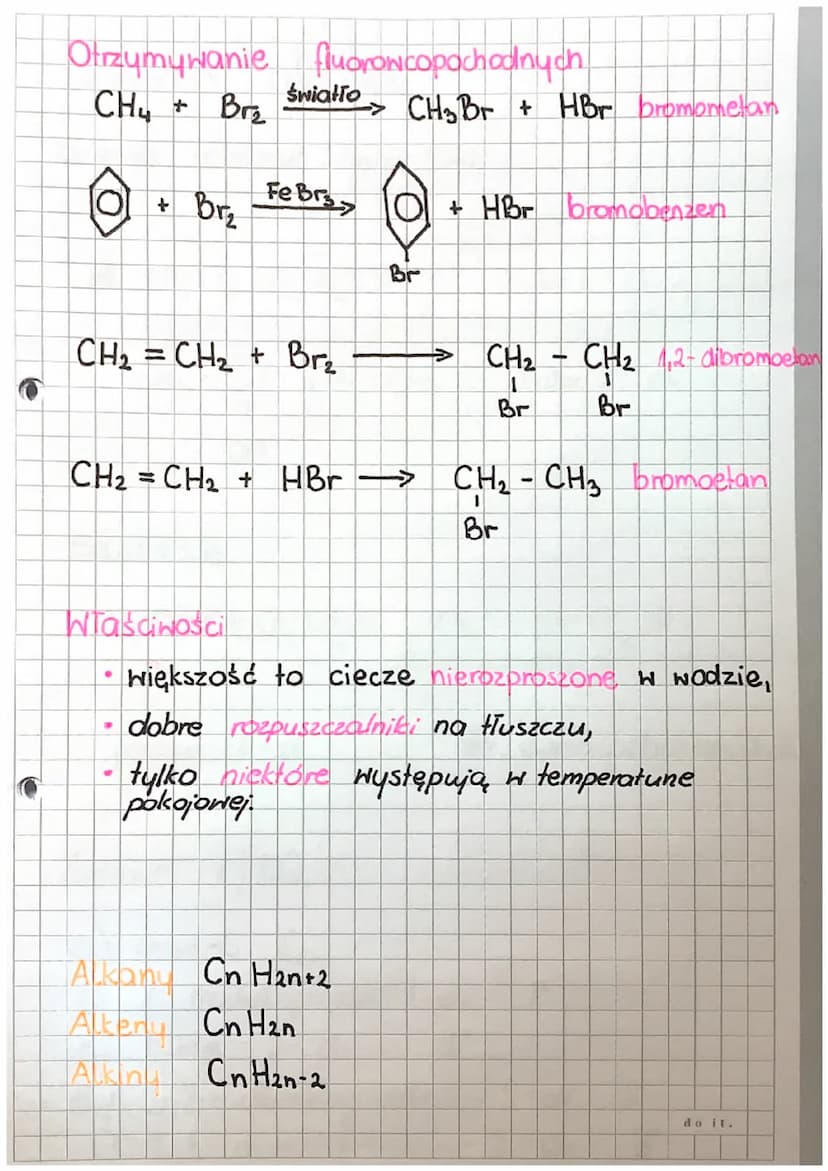 Otrzymywanie fluorowcopochodnych
CH₄ + Br₂ światło → CH₃Br + HBr bromometan
+ Br₂ FeBr₃ → + HBr bromobenzen
Br
CH₂ = CH₂ + Br₂ → CH₂ - CH₂ 1,2-dibromoetan
Br Br
CH₂ = CH₂ + HBr → CH₂ - CH₃ bromoetan
Br
Właściwości
• większość to ciecze nierozproszone w wodzie,
• dobre rozpuszczalniki na tłuszczu,
• tylko niektóre występują w temperaturze
pokojowej.
Alkany CnH2n+2
Alkeny CnH2n
Alkiny CnH2n-2
do it.